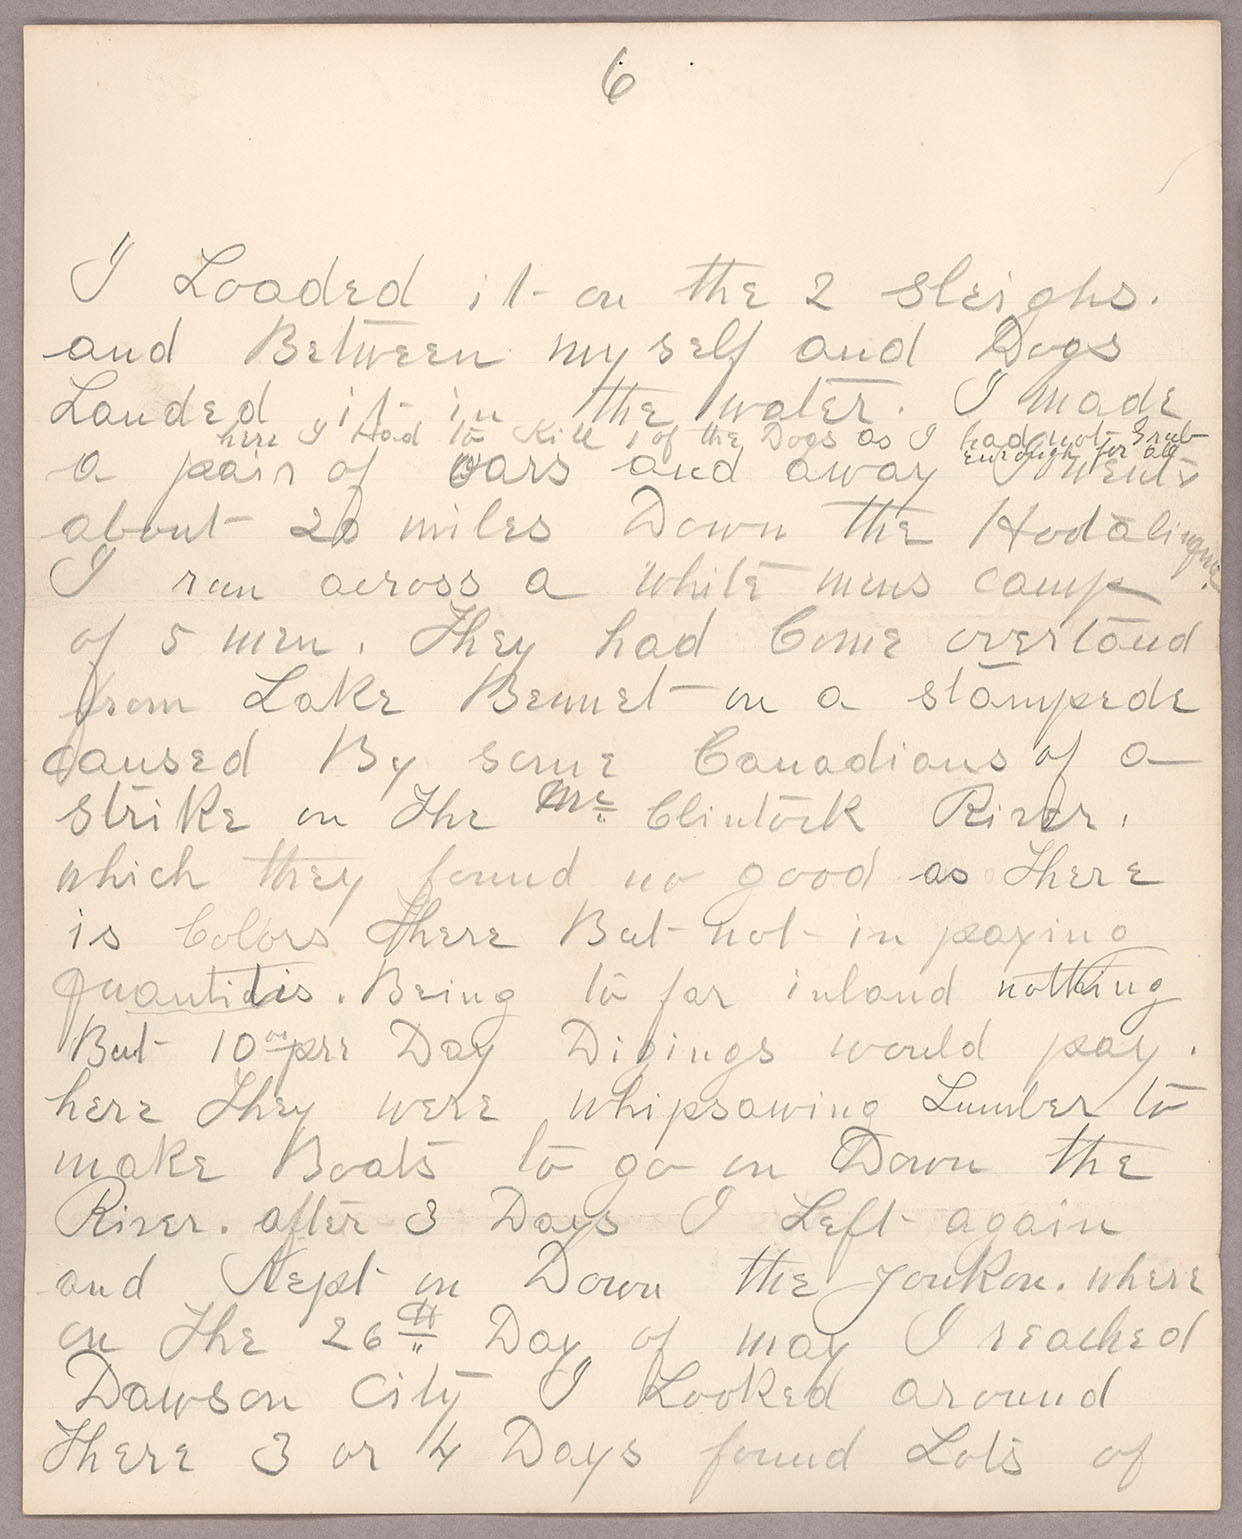 6
I Loaded it on the 2 sleighs.
and Between my self and Dogs
Landed it in the water. I made
here I Had to Kill 1 of the Dogs as I had not Grub
enough for all
a pair of oars and away I went
about 20 miles Down the Hodalinque.
I run across a white mens camp
of 5 men. They had Come overland
from Lake Bennet on a stampede
caused By some Canadians of a
strike on The Mc Clintock River.
which they found no good as There
is Colors There But not in paying
quantidis. Being to far inland nothing
But 10 per Day Digings would pay.
here They were whipsawing Lumber to
make Boats to go on Down the
River. after 3 Days I Left again
and Kept on Down the youKon. where
on The 26th Day of may I reached
Dawson City I Looked around
There 3 or 4 Days found Lots of